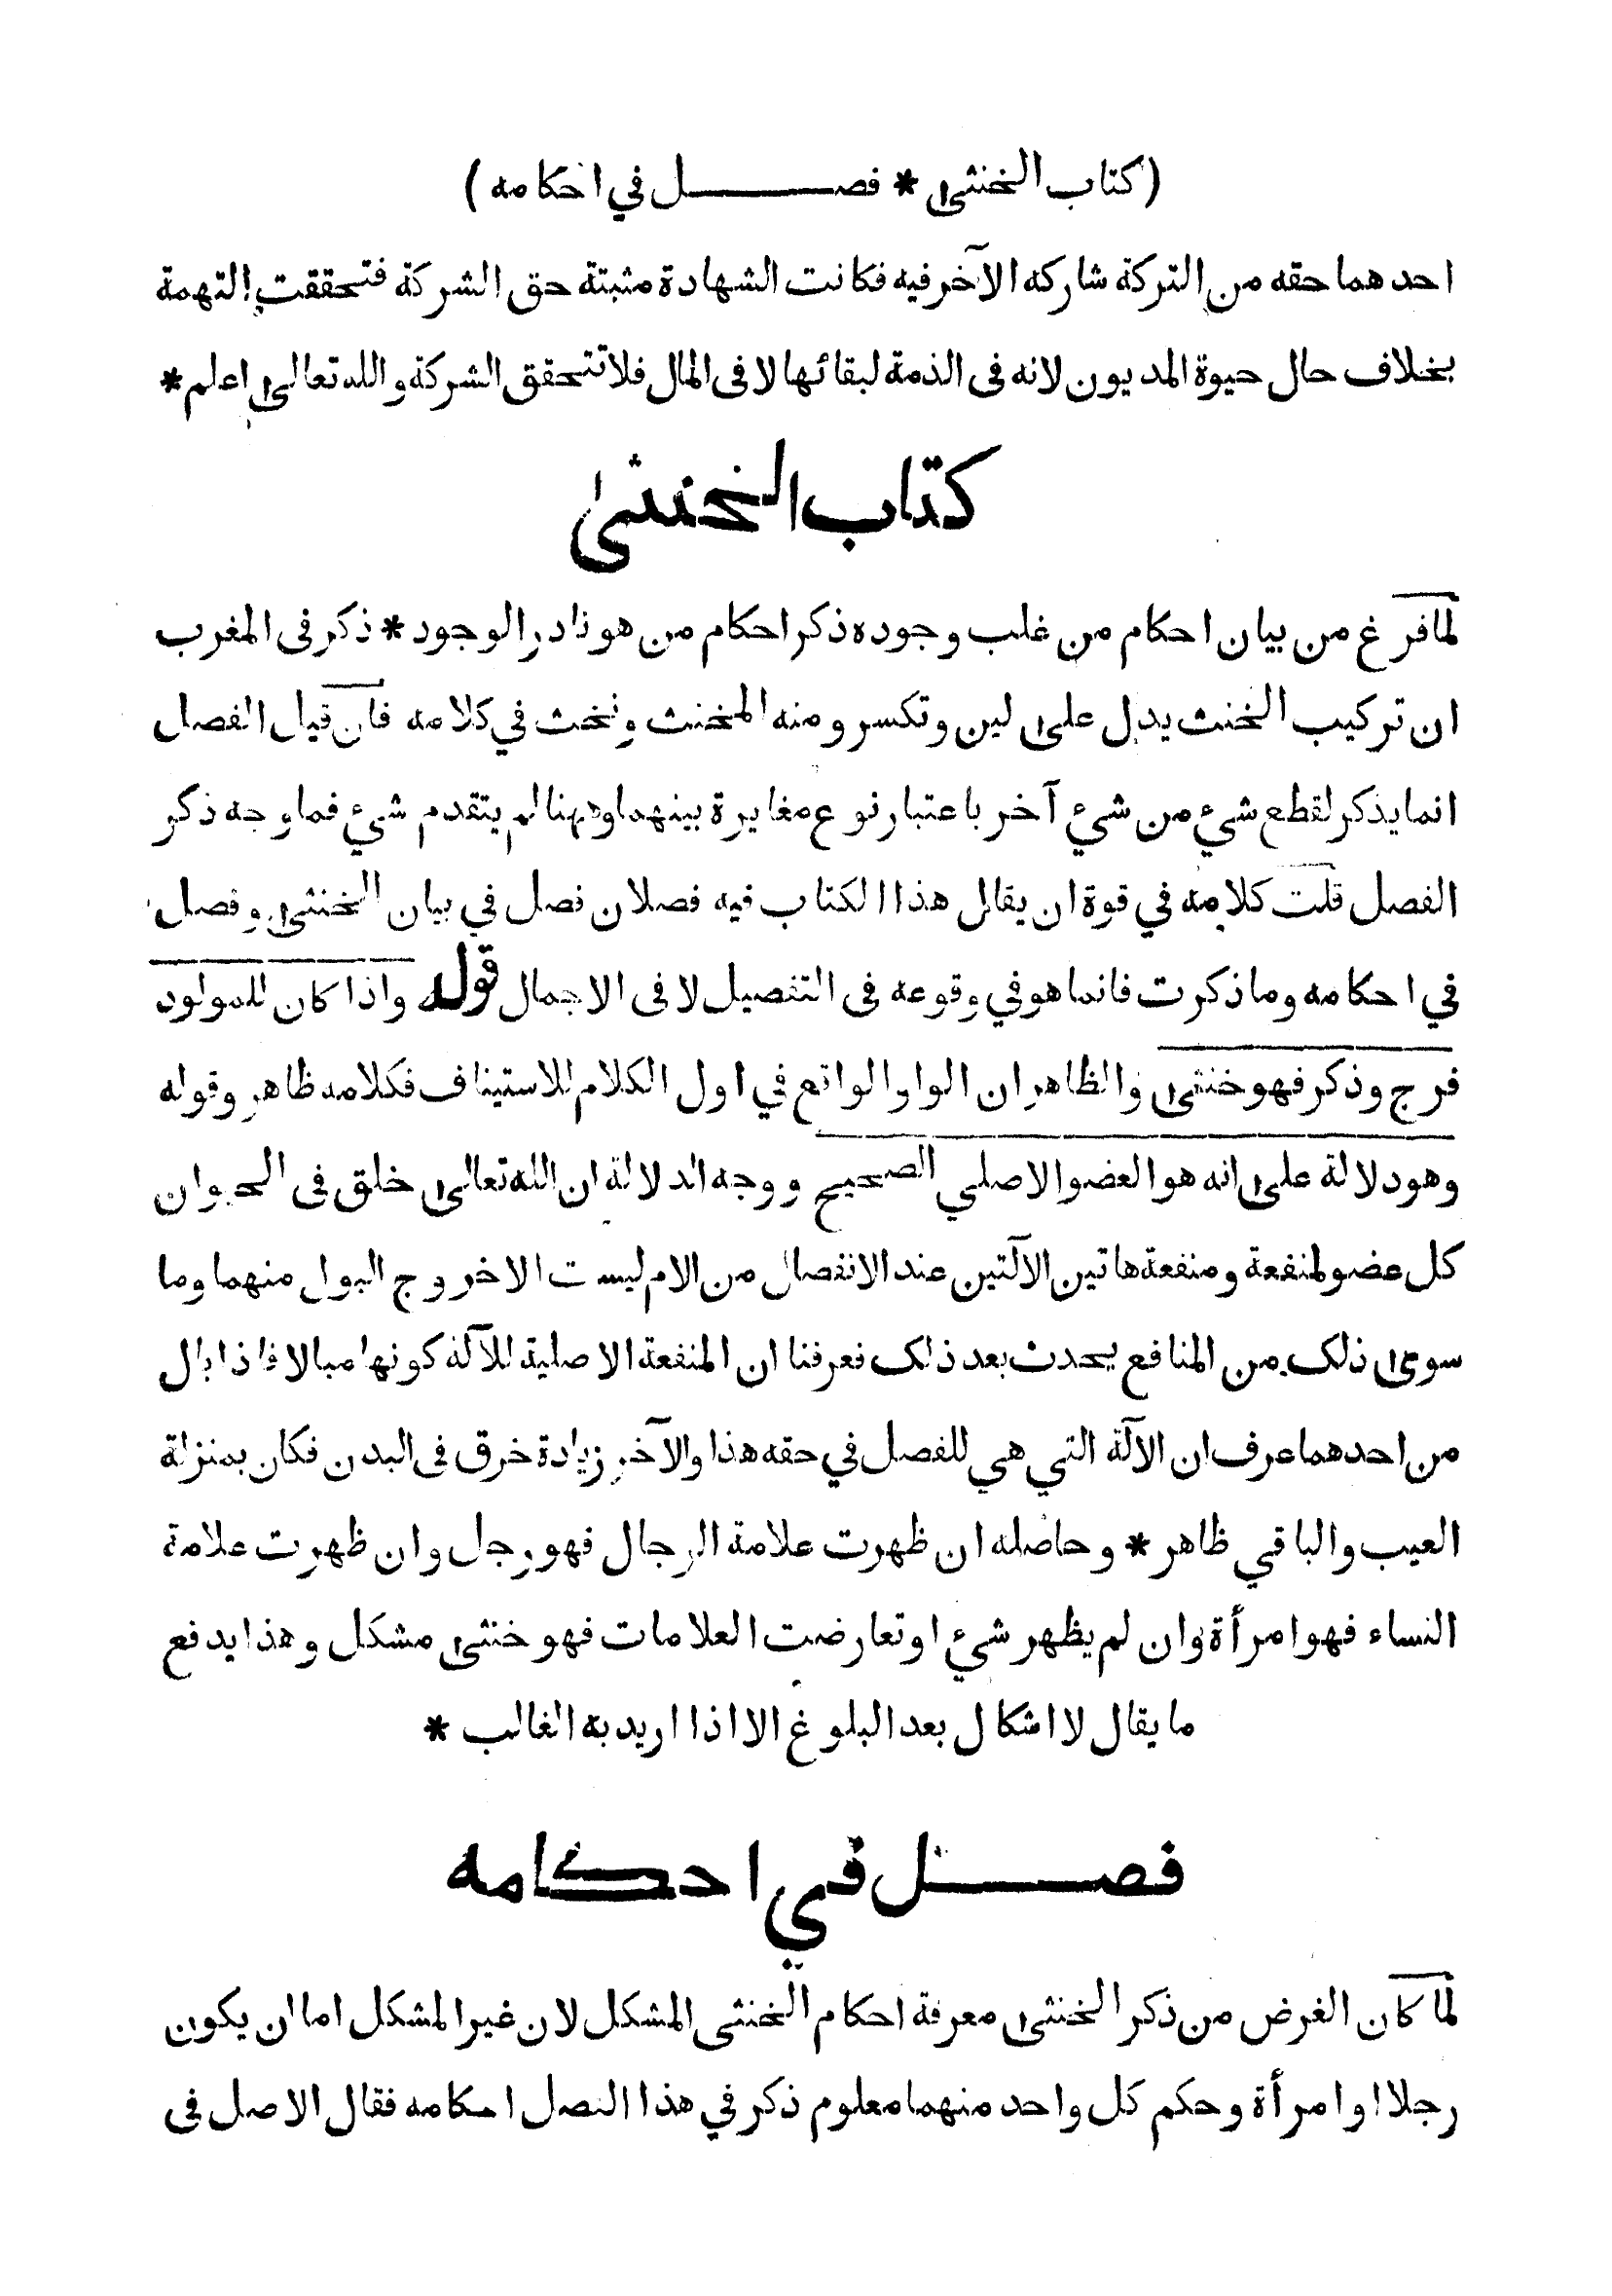 (كتاب الخنثى * فصل في احكامه)
احدهما حقه من التركة شاركه الآخر فيه فكانت الشهادة مثبتة حق الشركة فتحققت التهمة
بخلاف حال حيوة المديون لانه فى الذمة لبقائها لا فى المال فلا تتحقق الشركة والله تعالى اعلم *
كتاب الخنثى
لما فرغ من بيان احكام من غلب وجوده ذكر احكام من هو نادر الوجود * ذكر فى المغرب
ان تركيب الخنث يدل على لين وتكسر ومنه المخنث وتخنث في كلامه فان قيل الفصل
انما يذكر لقطع شيء من شيء آخر باعتبار نوع مغايرة بينهما وههنا لم يتقدم شيء فما وجه ذكر
الفصل قلت كلامه في قوة ان يقال هذا الكتاب فيه فصلان فصل في بيان الخنثى وفصل
في احكامه وما ذكرت فانما هو في وقوعه فى التفصيل لا فى الاجمال قوله واذا كان للمولود
فرج وذكر فهو خنثى والظاهر ان الواو الواقع في اول الكلام للاستيناف فكلامه ظاهر وقوله
وهو دلالة على انه هو العضو الاصلي الصحيح ووجه الدلالة ان الله تعالى خلق فى الحيوان
كل عضو لمنفعة ومنفعة هاتين الآلتين عند الانفصال من الام ليست الا خروج البول منهما وما
سوى ذلك من المنافع يحدث بعد ذلك فعرفنا ان المنفعة الاصلية للآلة كونها مبالا فاذا بال
من احدهما عرف ان الآلة التي هي للفصل في حقه هذا والآخر زيادة خرق فى البدن فكان بمنزلة
العيب والباقي ظاهر * وحاصله ان ظهرت علامة الرجال فهو رجل وان ظهرت علامة
النساء فهو امرأة وان لم يظهر شيء او تعارضت العلامات فهو خنثى مشكل وهذا يدفع
ما يقال لا اشكال بعد البلوغ الا اذا اريد به الغالب *
فصل في احكامه
لما كان الغرض من ذكر الخنثى معرفة احكام الخنثى المشكل لان غير المشكل اما ان يكون
رجلا او امرأة وحكم كل واحد منهما معلوم ذكر في هذا الفصل احكامه فقال الاصل فى